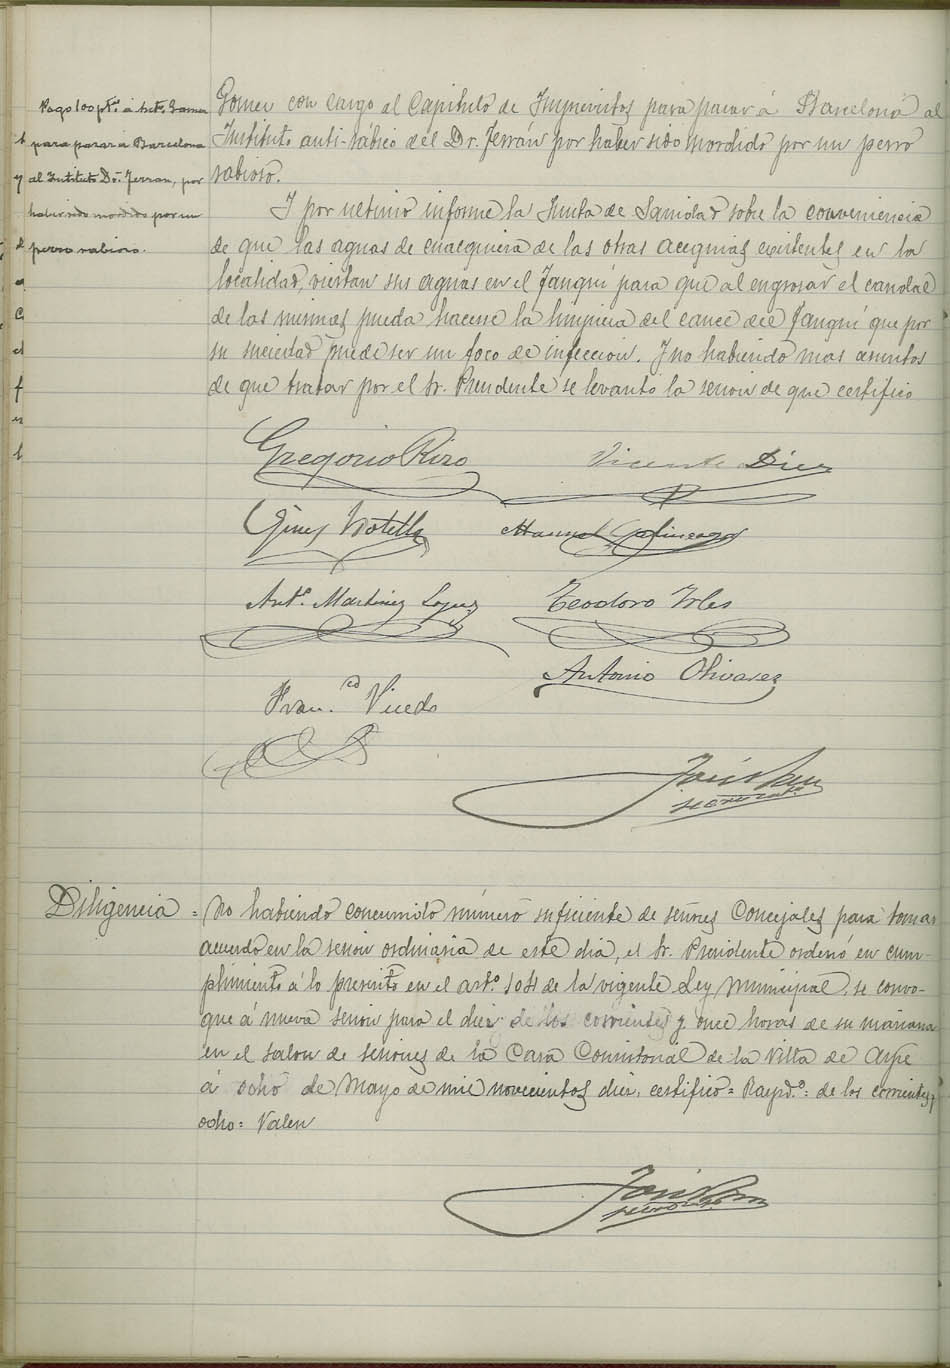 Pago 100 pts. á Ant. Gomez
para pasar á Barcelona
al Instituto Dr. Ferran, por
haber sido mordido por un
perro rabioso.
Gomez con cargo al Capitulo de Imprevistos para pasar á Barcelona al
Instituto anti-rábico del Dr. Ferrán por haber sido mordido por un perro
rabioso.
I por ultimo informe la Junta de Sanidad sobre la conveniencia
de que las aguas de cualquiera de las otras acequias existentes en la
localidad, viertan sus aguas en el Fanquí para que al engrosar el caudal
de las mismas pueda hacerse la limpieza del cauce del Fanquí que por
su suciedad puede ser un foco de infeccion. I no habiendo mas asuntos
de que tratar por el Sr. Presidente se levantó la sesion de que certifico
Gregorio Rizo
Vicente Diez
Gines Botella
Manuel
Ant.º Martinez Lopez
Teodoro Irles
Antonio Olivares
Fran.co Vicedo
José
secretario
Diligencia = No habiendo concurrido número suficiente de señores Concejales para tomar
acuerdo en la sesion ordinaria de este dia, el Sr. Presidente ordenó en cum-
plimiento á lo prescrito en el art.º 104 de la vigente Ley Municipal, se convo-
que á nueva sesion para el diez de los corrientes y once horas de su mañana
en el salon de sesiones de la Casa Consistorial de la Villa de Aspe
á ocho de Mayo de mil novecientos diez, certifico = Raspd.º = de los corrientes y
ocho = Valen
José
secretario